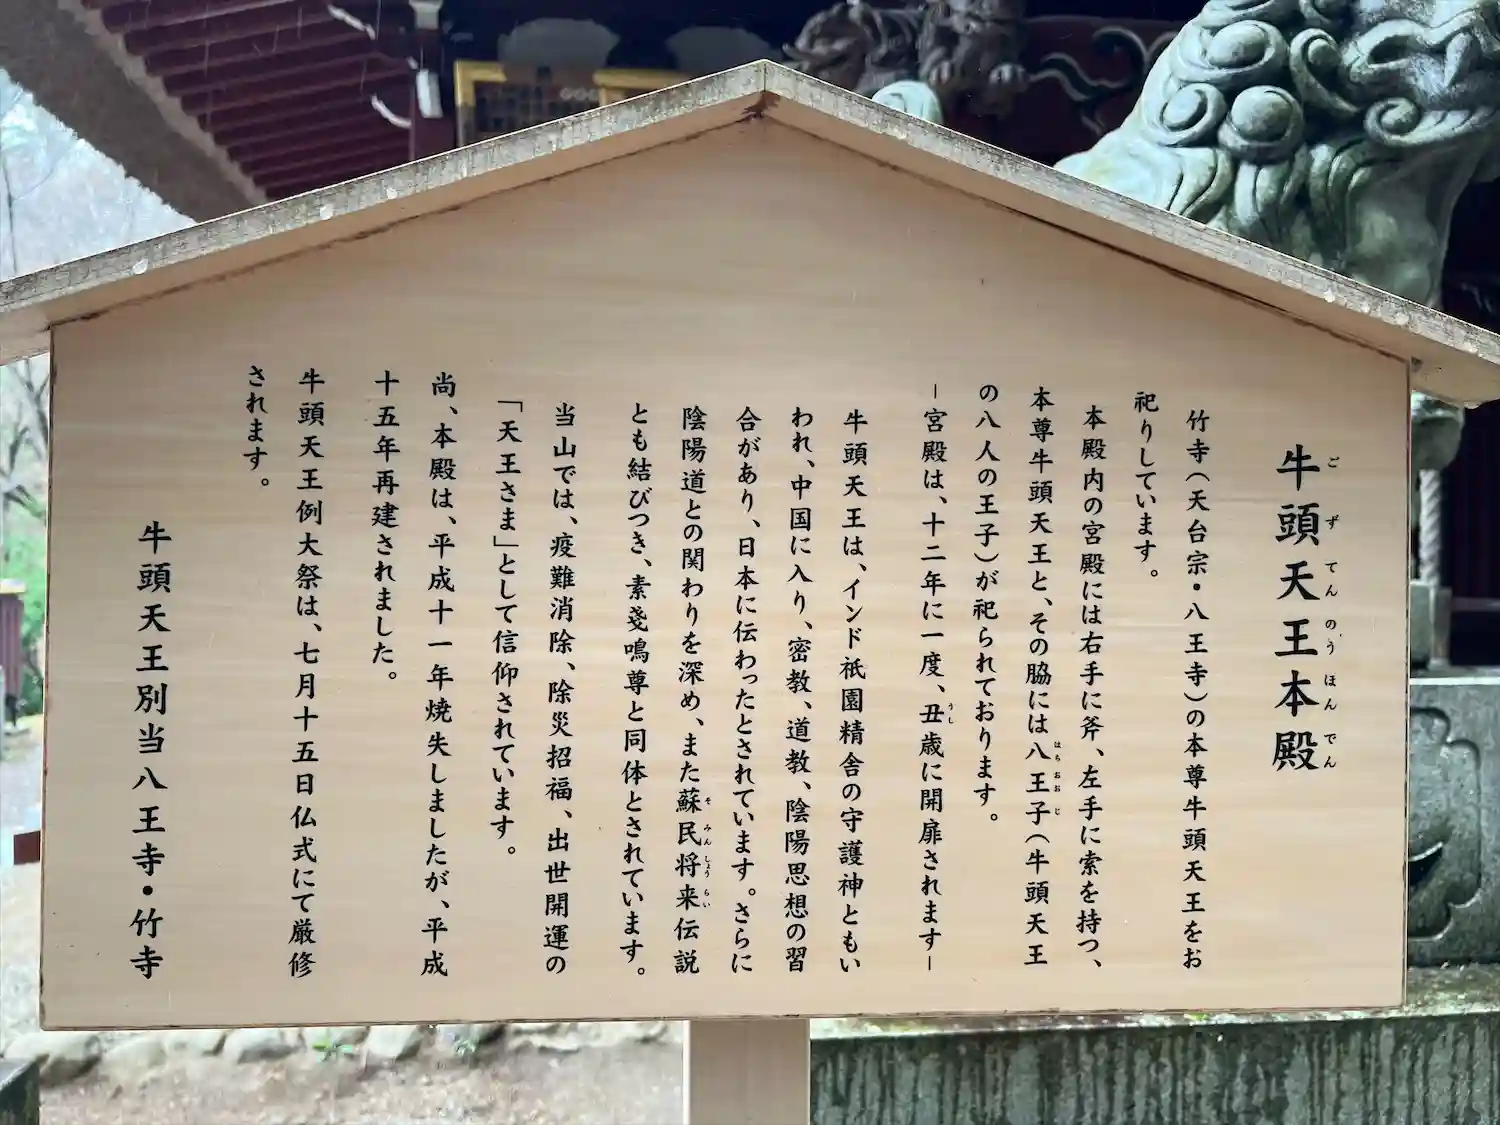 牛頭天王本殿
ごずてんのうほんでん
竹寺(天台宗・八王寺)の本尊牛頭天王をお
祀りしています。
本殿内の宮殿には右手に斧、左手に索を持つ、
本尊牛頭天王と、その脇には八王子(牛頭天王
はちおおじ
の八人の王子)が祀られております。
―宮殿は、十二年に一度、丑歳に開扉されます―
うし
牛頭天王は、インド祇園精舎の守護神ともい
われ、中国に入り、密教、道教、陰陽思想の習
合があり、日本に伝わったとされています。さらに
陰陽道との関わりを深め、また蘇民将来伝説
そみんしょうらい
とも結びつき、素戔鳴尊と同体とされています。
当山では、疫難消除、除災招福、出世開運の
「天王さま」として信仰されています。
尚、本殿は、平成十一年焼失しましたが、平成
十五年再建されました。
牛頭天王例大祭は、七月十五日仏式にて厳修
されます。
牛頭天王別当八王寺・竹寺